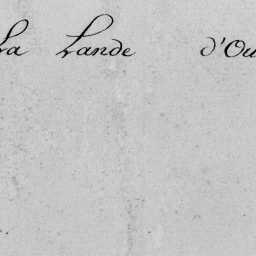 La Lande d'Ou